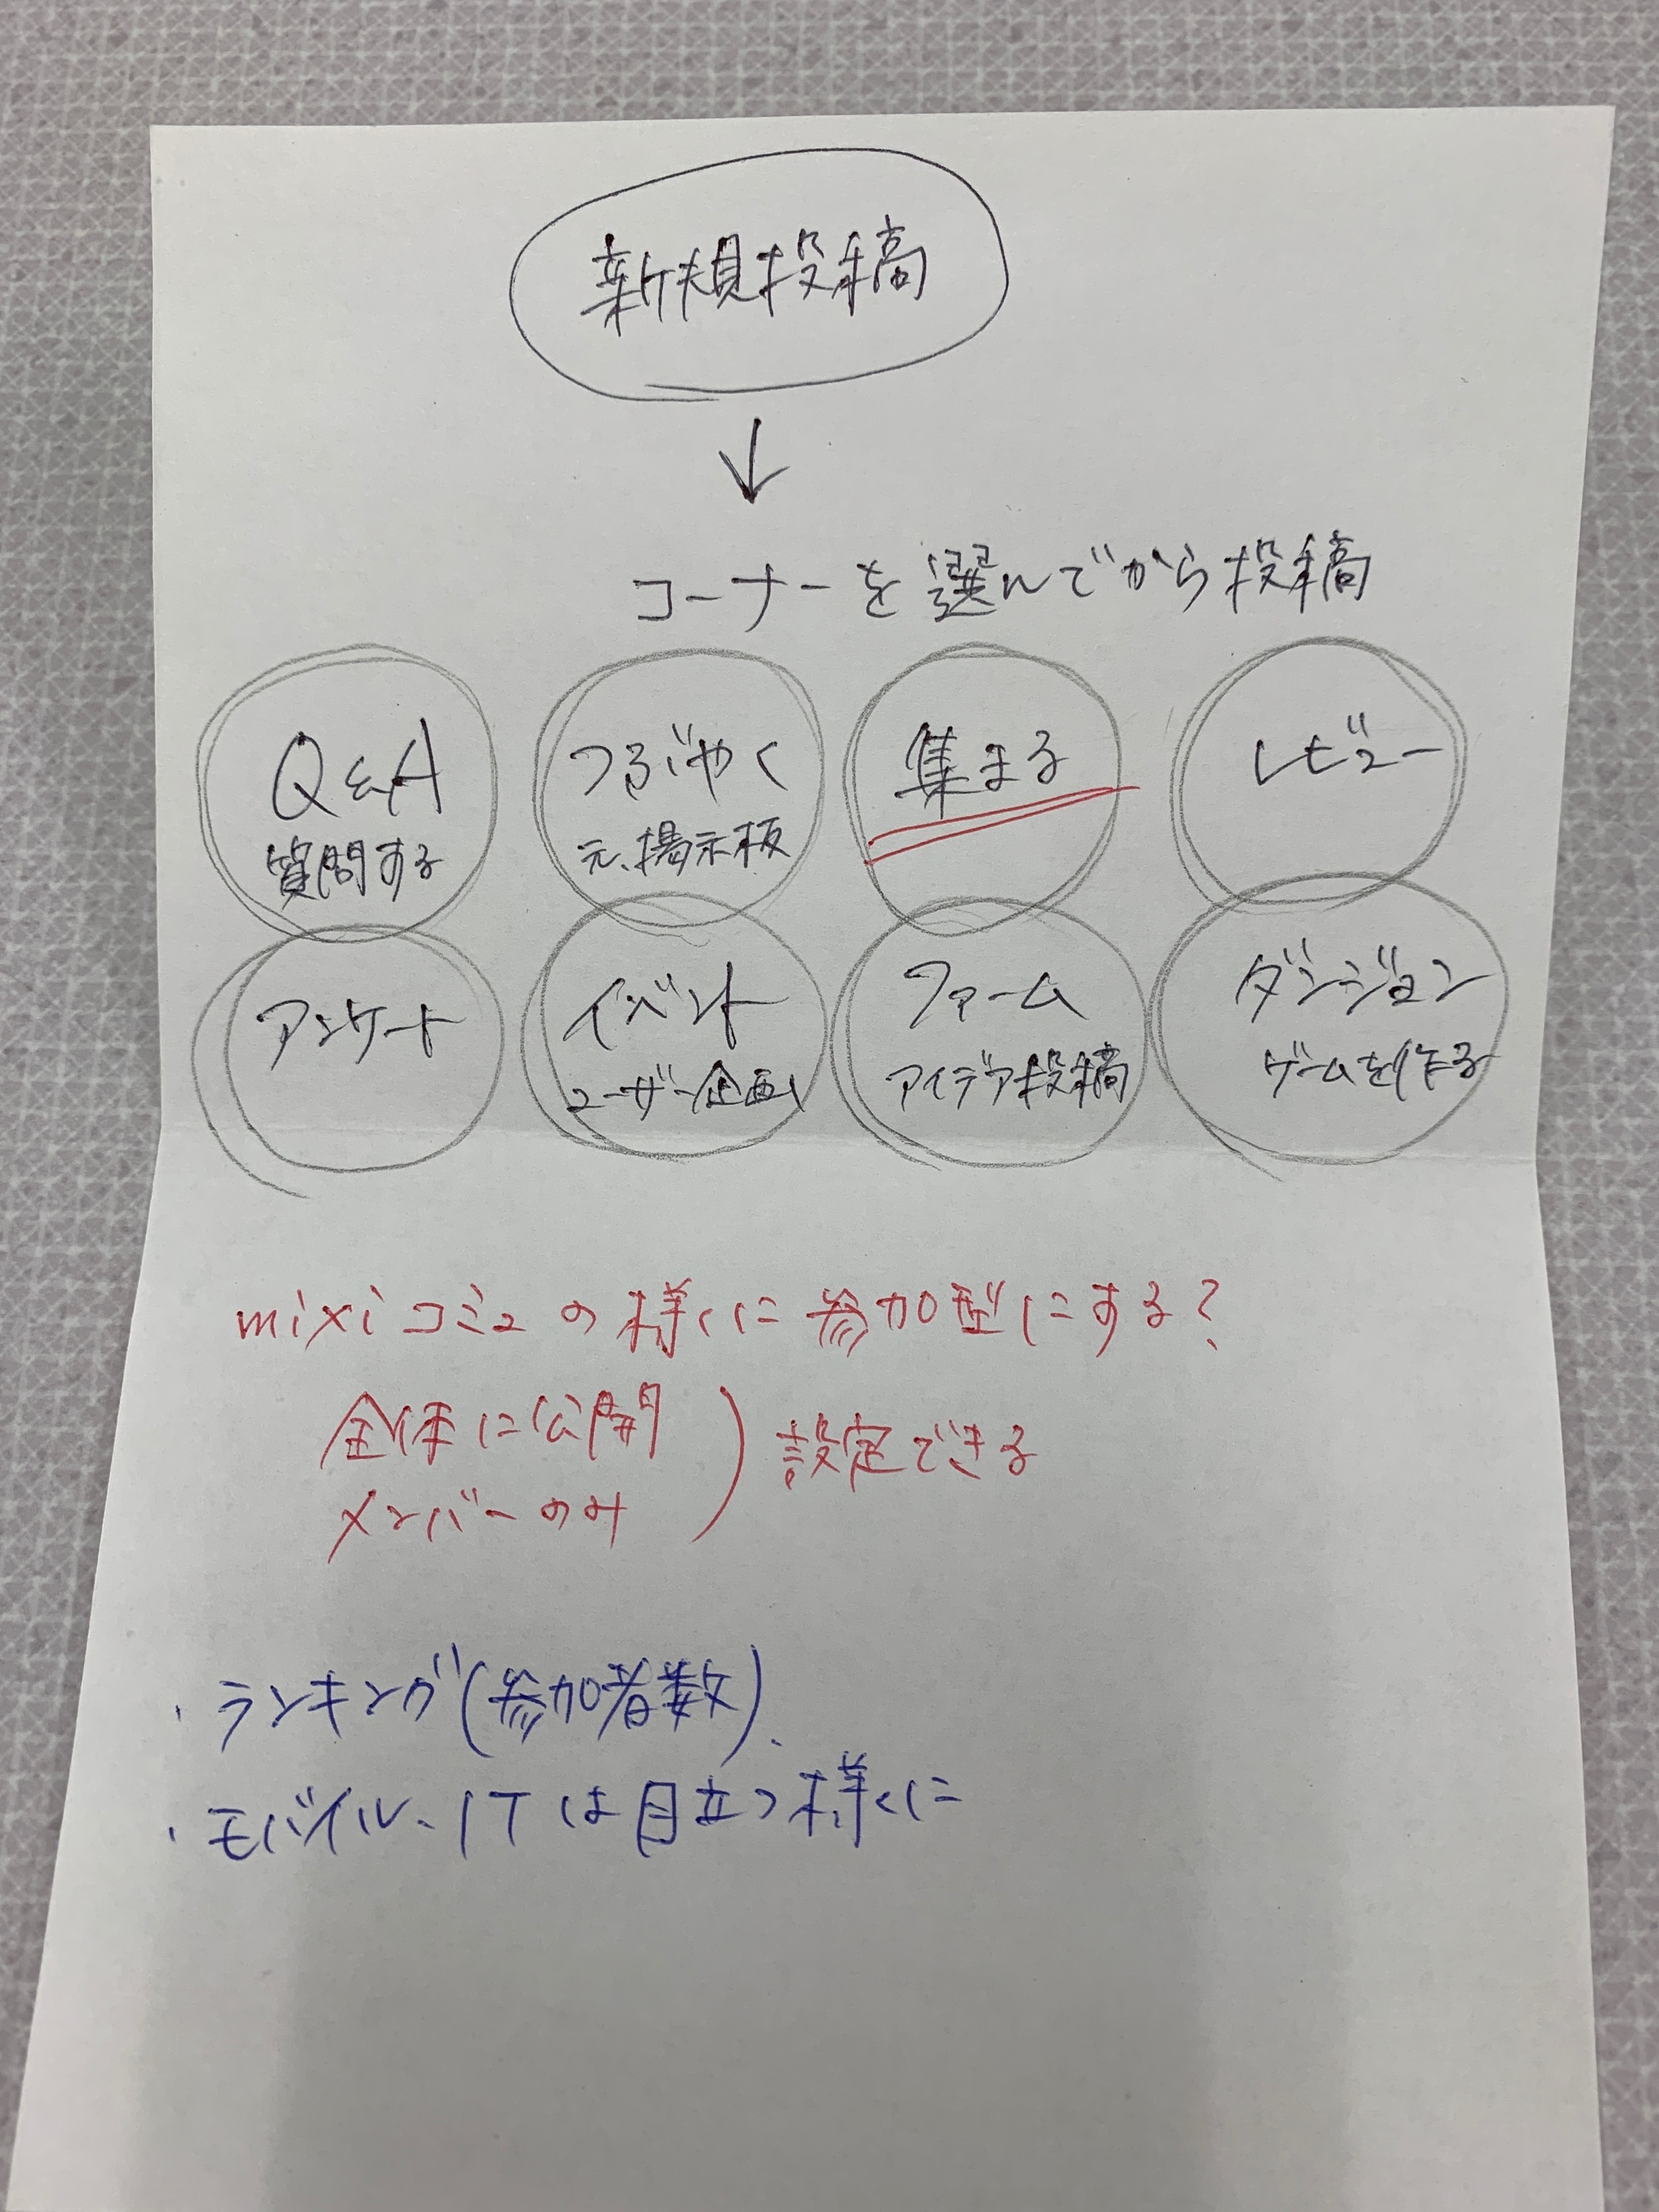 新規投稿
↓
コーナーを選んでから投稿
Q&A
質問する
つぶやく
元、掲示板
集まる
レビュー
アンケート
イベント
ユーザー企画
ファーム
アイデア投稿
ダンジョン
ゲームを作る
mixiコミュの様に参加型にする?
全体に公開
メンバーのみ
) 設定できる
・ランキング(参加者数)、
・モバイル、ITは目立つ様に